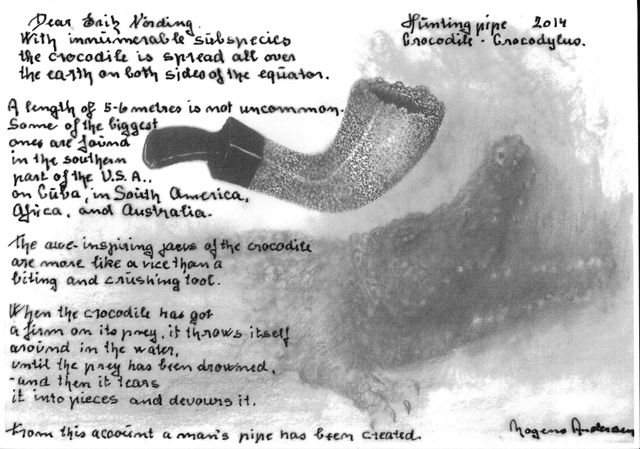 Dear Erik Nørding.
With innumerable subspecies
the crocodile is spread all over
the earth on both sides of the equator.
Hunting pipe 2014
Crocodile - Crocodylus.
A length of 5-6 metres is not uncommon.
Some of the biggest
ones are found
in the southern
part of the U.S.A.,
on Cuba, in South America,
Africa, and Australia.
The awe-inspiring jaws of the crocodile
are more like a vice than a
biting and crushing tool.
When the crocodile has got
a firm on its prey, it throws itself
around in the water,
until the prey has been drowned,
-and then it tears
it into pieces and devours it.
From this account a man's pipe has been created.
Mogens Andersen